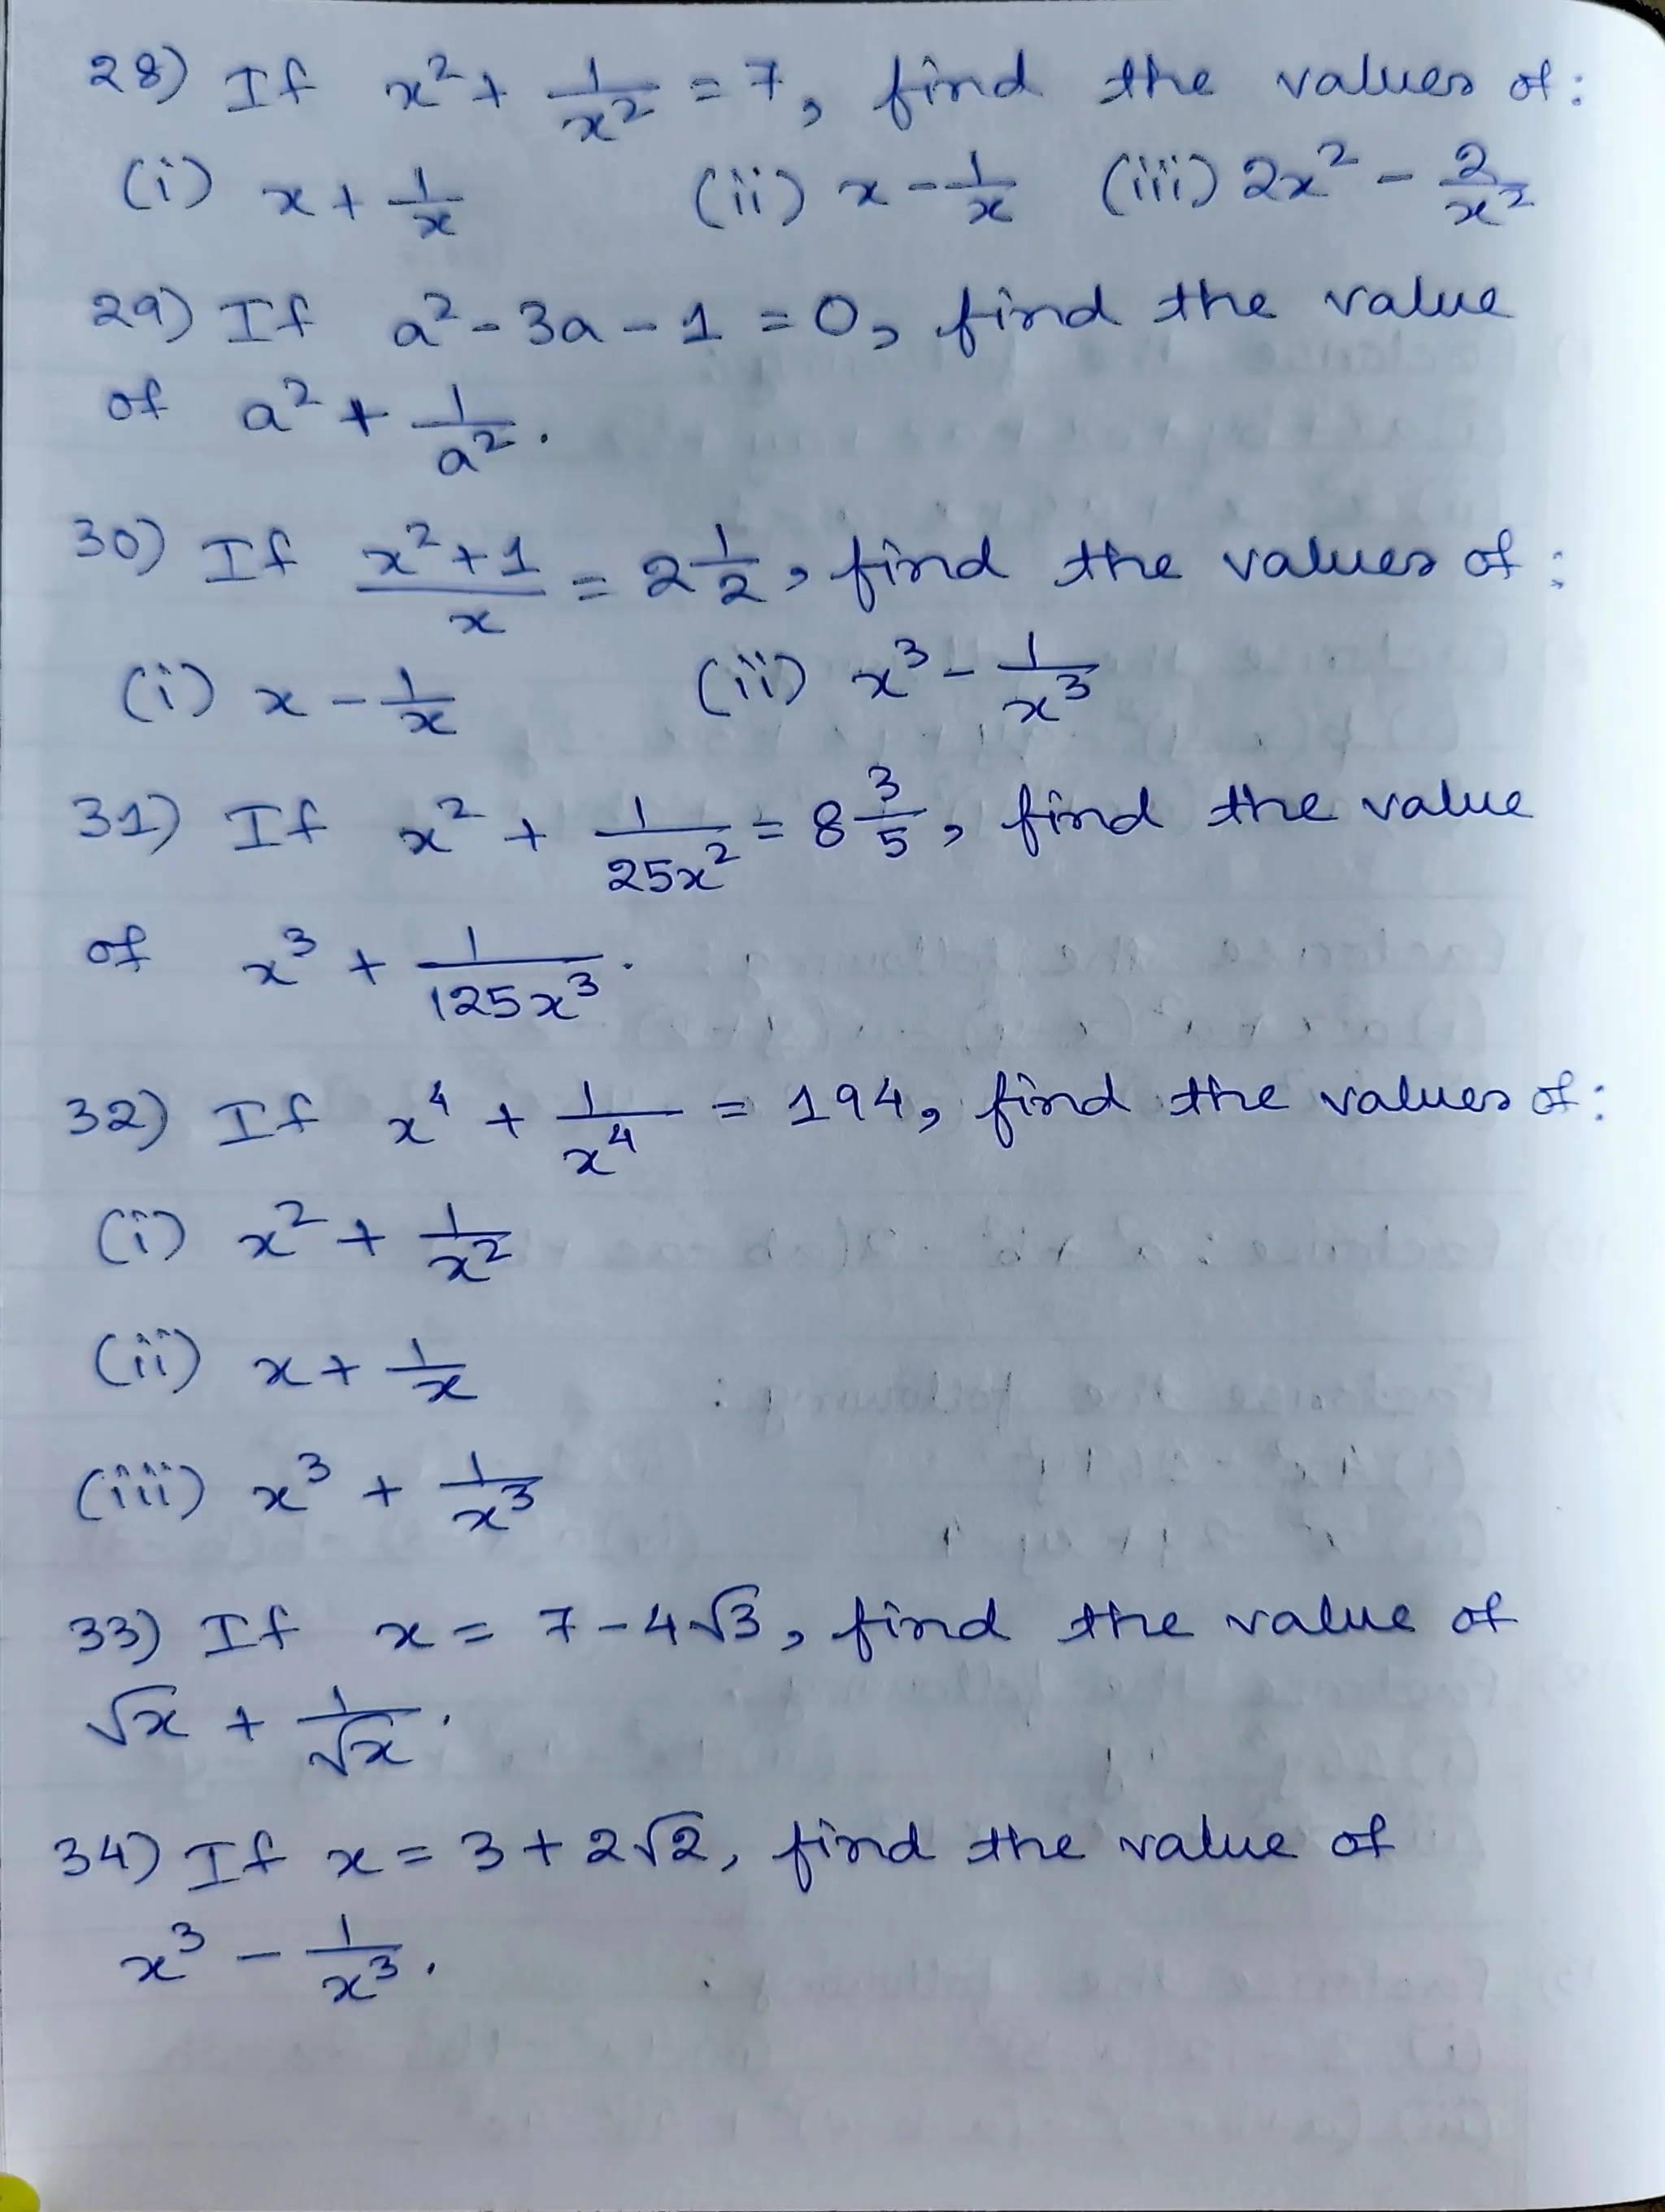 28) If x² + 1/x² = 7, find the values of:
(i) x + 1/x (ii) x - 1/x (iii) 2x² - 2/x²
29) If a² - 3a - 1 = 0, find the value
of a² + 1/a².
30) If (x² + 1)/x = 2 1/2, find the values of:
(i) x - 1/x (ii) x³ - 1/x³
31) If x² + 1/(25x²) = 8 3/5, find the value
of x³ + 1/(125x³).
32) If x⁴ + 1/x⁴ = 194, find the values of:
(i) x² + 1/x²
(ii) x + 1/x
(iii) x³ + 1/x³
33) If x = 7 - 4√3, find the value of
√x + 1/√x.
34) If x = 3 + 2√2, find the value of
x³ - 1/x³.